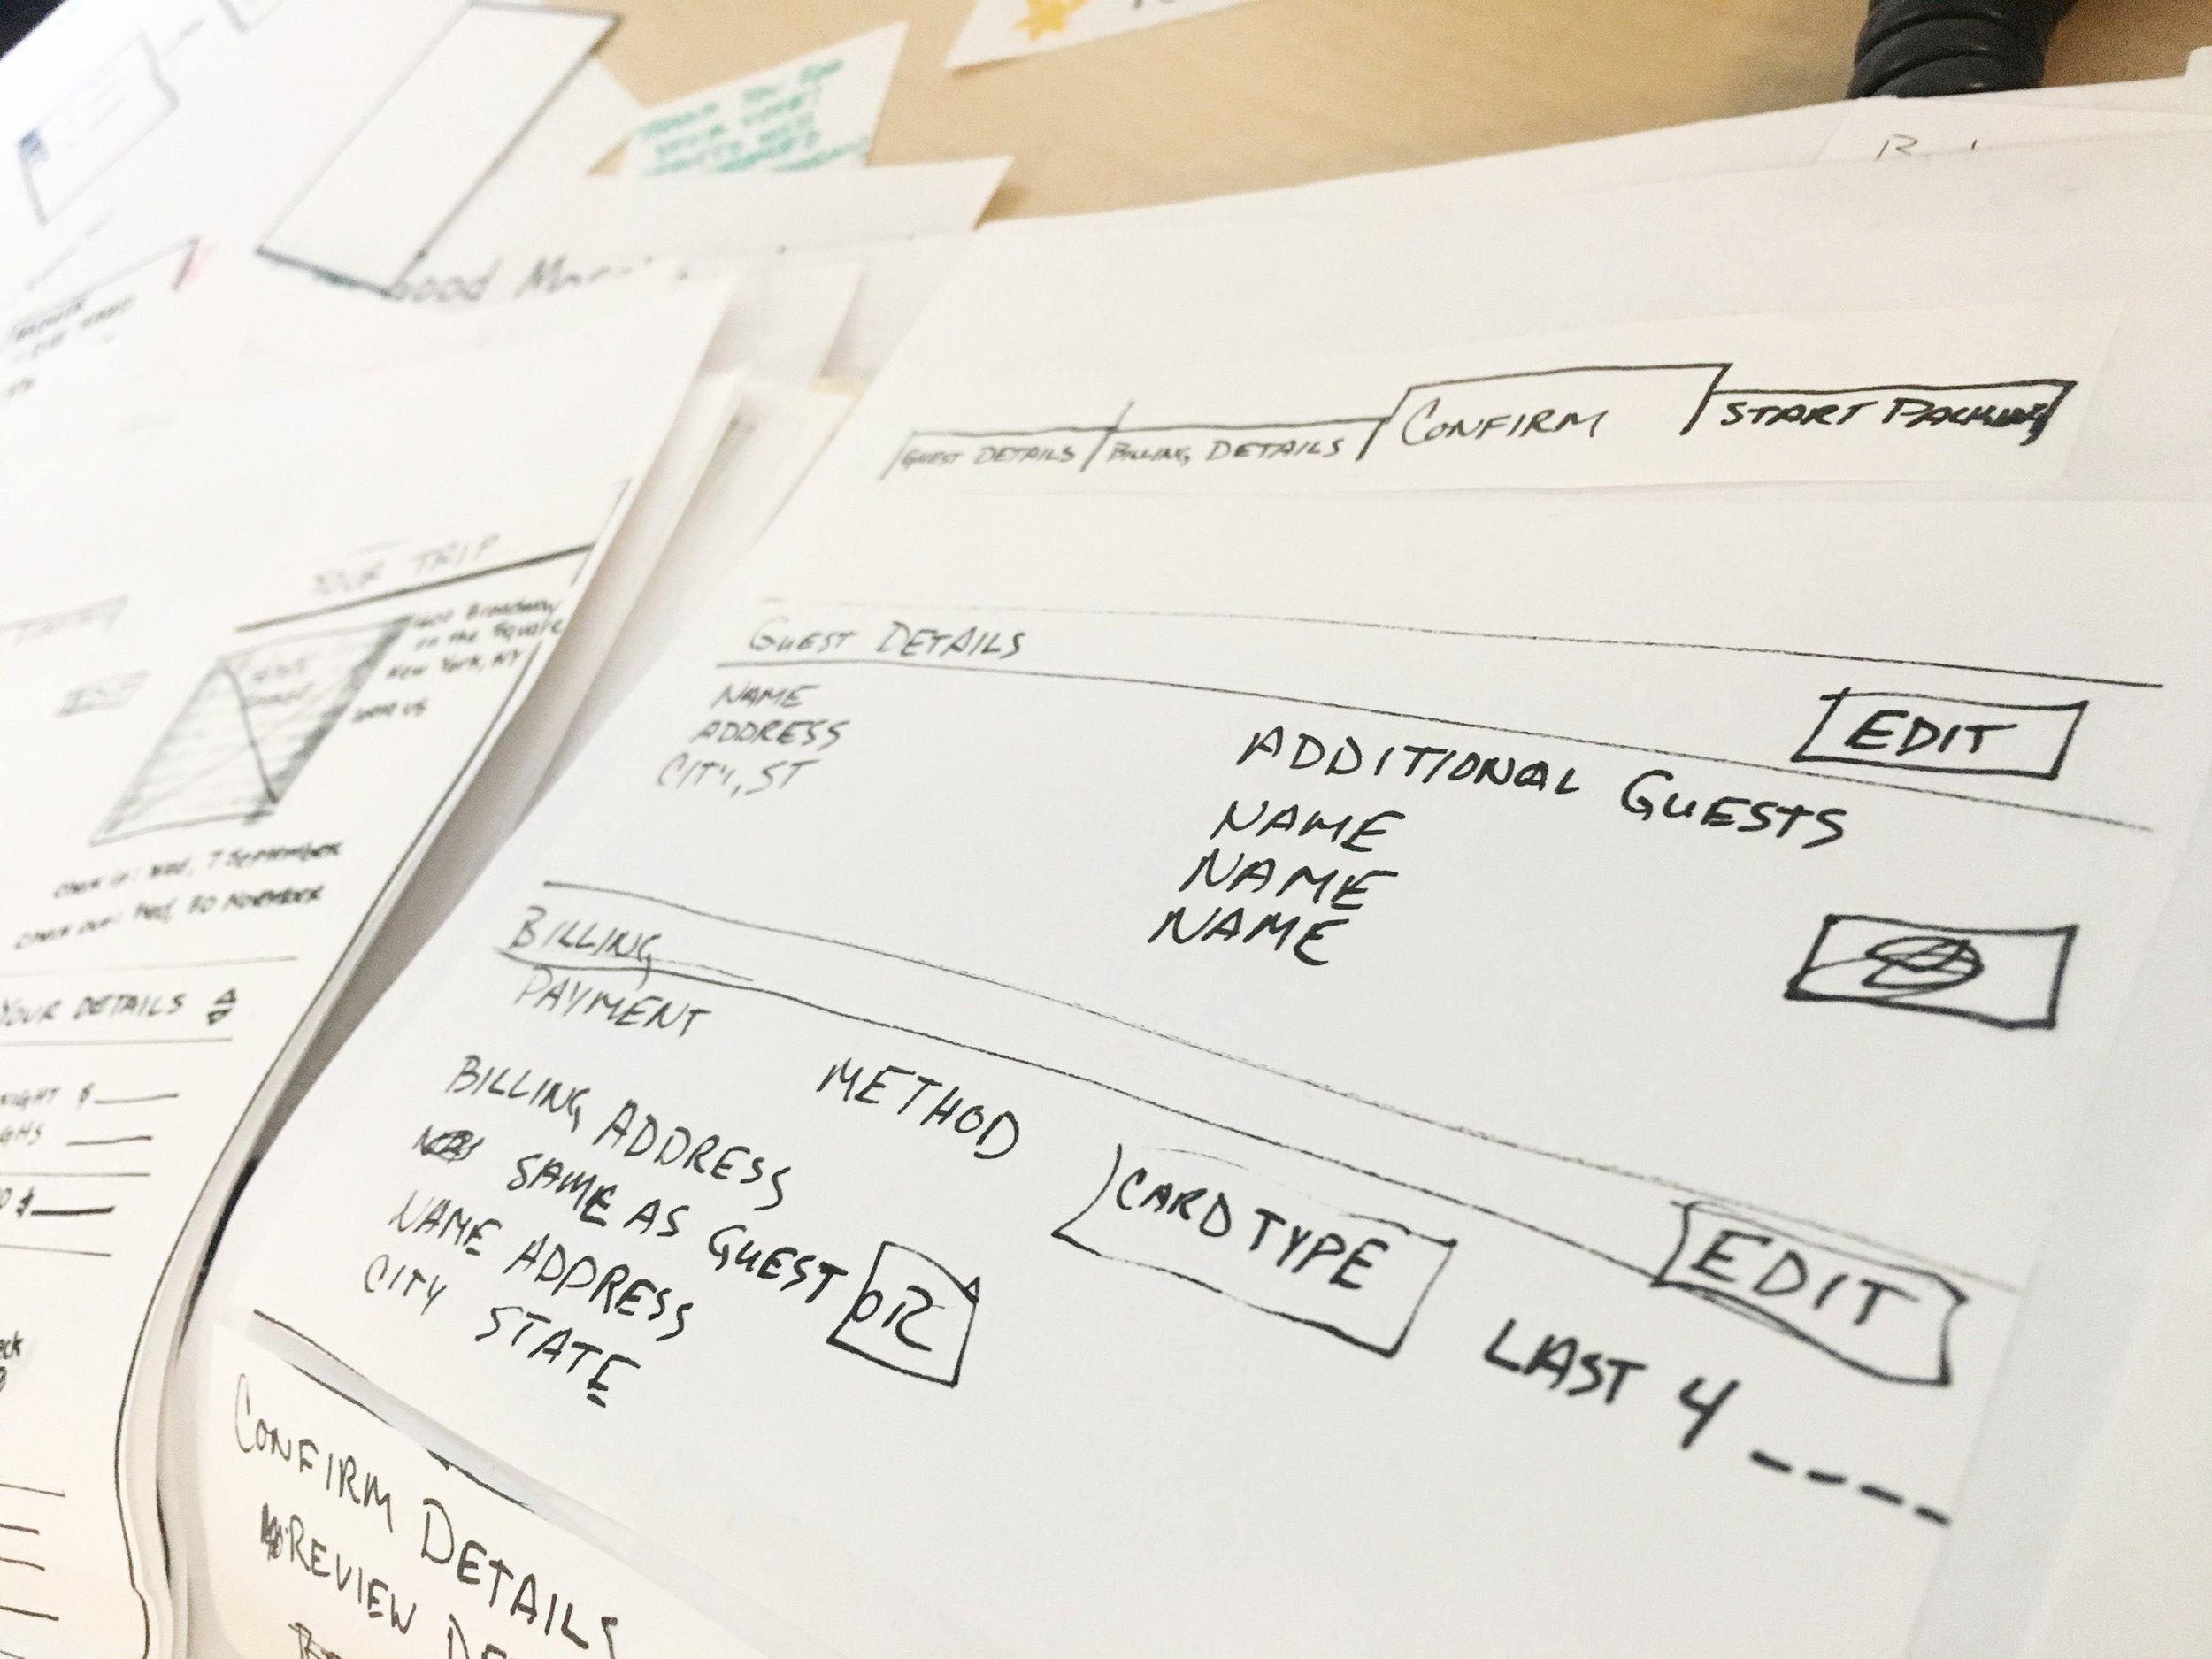 Good
GUEST DETAILS
BILLING DETAILS
CONFIRM
START PACKING
GUEST DETAILS
EDIT
NAME
ADDRESS
CITY, ST
ADDITIONAL GUESTS
NAME
NAME
NAME
BILLING
PAYMENT METHOD
EDIT
BILLING ADDRESS
SAME AS GUEST OR
NAME ADDRESS
CITY STATE
CARD TYPE
LAST 4 ----
CONFIRM DETAILS
REVIEW
YOUR TRIP
1600 Broadway
on the Square
New York, NY
Check in: Wed, 7 September
Check out: Wed, 30 November
YOUR DETAILS
NIGHT $
$